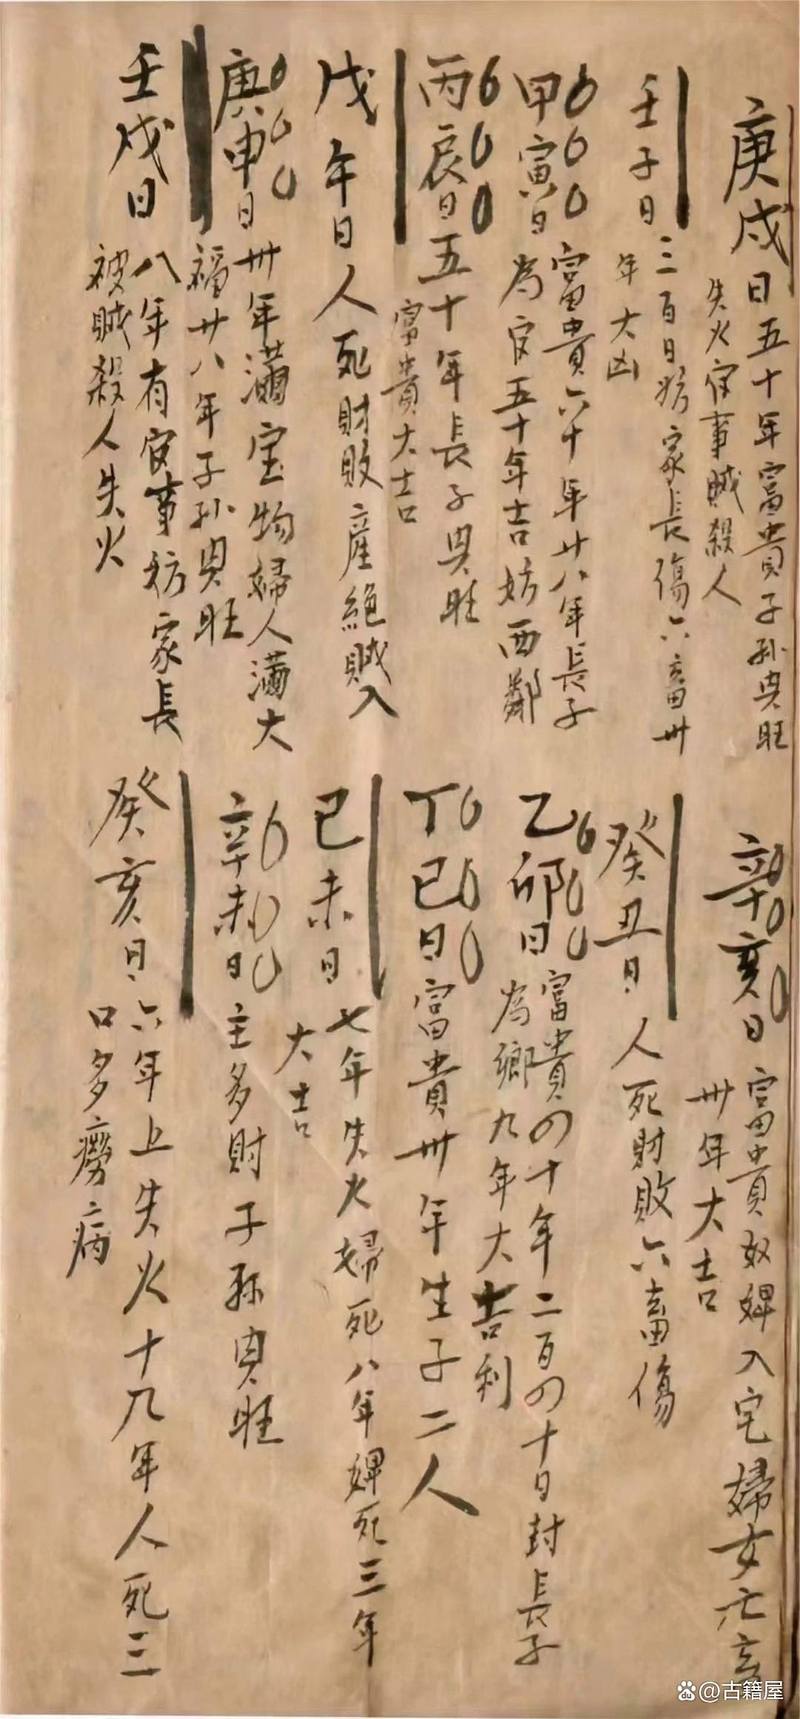 庚戌日五十年富貴子孫興旺
失火官事賊殺人
壬子日三百日妨家長傷六畜卅
年大凶
甲寅日富貴六十年廿八年長子
為官五十年吉妨西鄰
丙辰日五十年長子興旺
富貴大吉
戊午日人死財敗產絕賊入
庚申日卅年滿宝物婦人滿大
福廿八年子孫興旺
壬戌日八年有官事妨家長
被賊殺人失火
辛亥日富貴奴婢入宅婦女亡
卅年大吉
癸丑日人死財敗六畜傷
乙卯日富貴四十年二百四十日封長子
為鄉九年大吉利
丁巳日富貴卅年生子二人
己未日七年失火婦死八年婢死三年
大吉
辛未日主多財子孫興旺
癸亥日六年上失火十九年人死三
口多癆病
@古籍屋